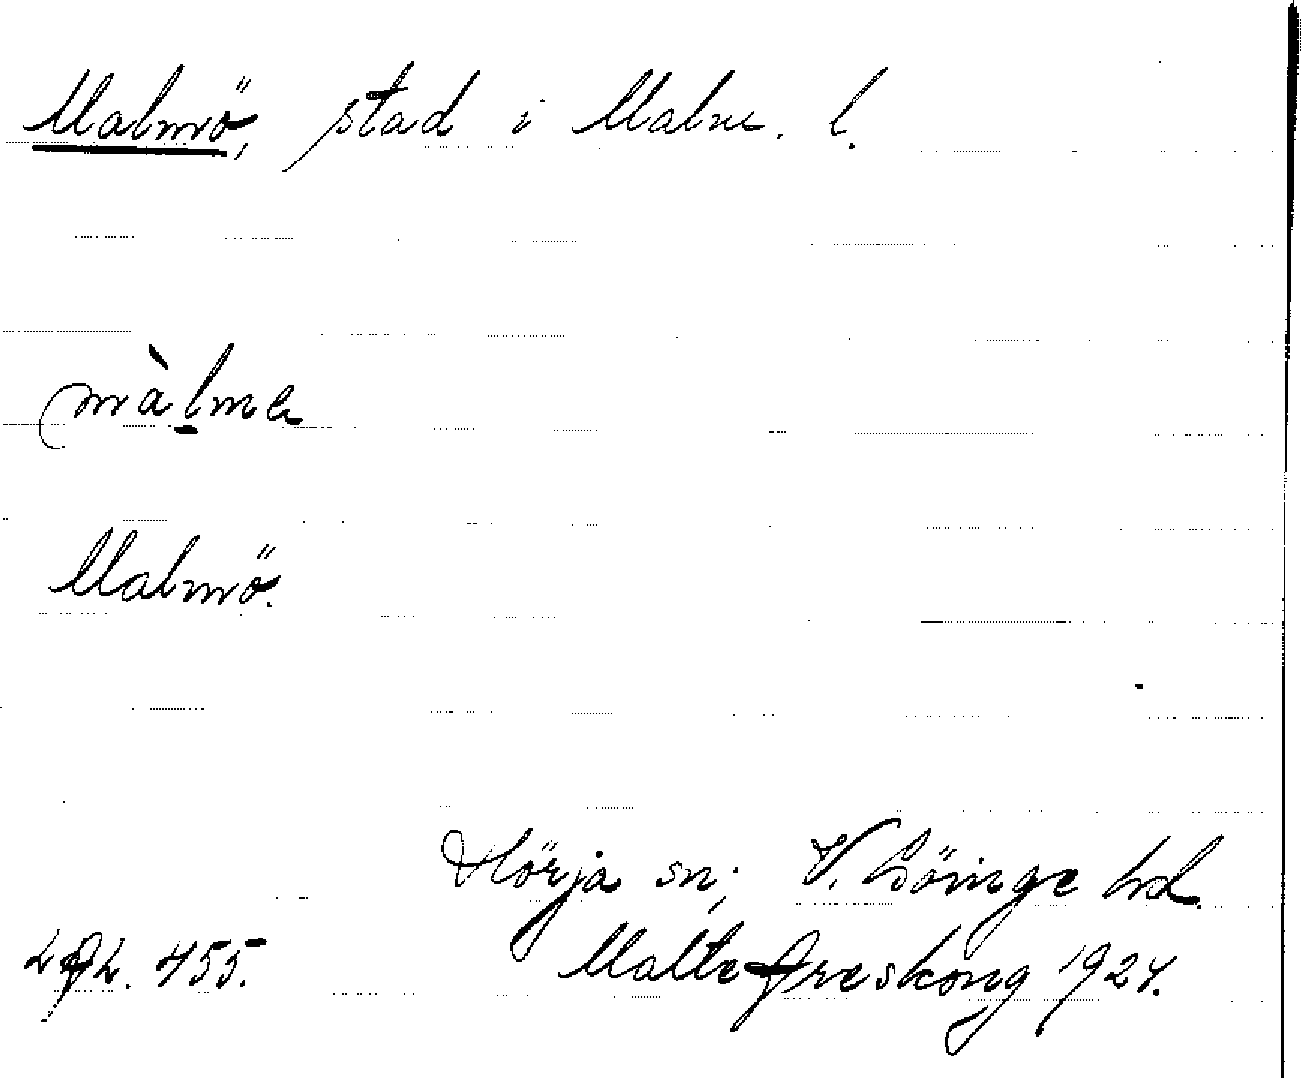 Malmö, stad i Malm. l.
màlmə
Malmö.
Hörja sn; V. Göinge hd.
455. Malte Areskoug 1924.